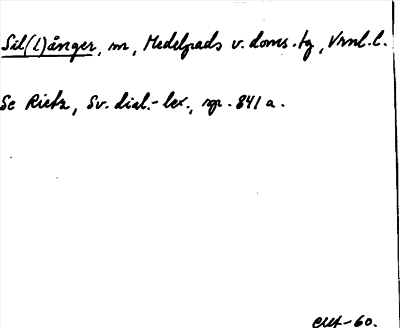 Sil(l)ånger, sn, Medelpads v. doms.tg, Vrnl.l.
Se Rietz, Sv. dial.-lex., sp. 841 a.
-60.